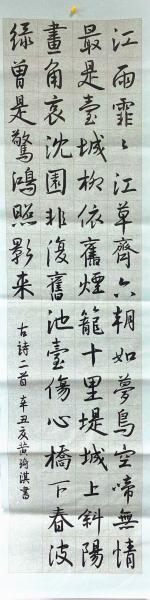 江雨霏々江草齊六朝如夢鳥空啼無情
最是臺城柳依舊煙籠十里堤城上斜陽
畫角哀沈園非復舊池臺傷心橋下春波
綠曾是驚鴻照影來
古詩二首 辛丑 黃 淇書